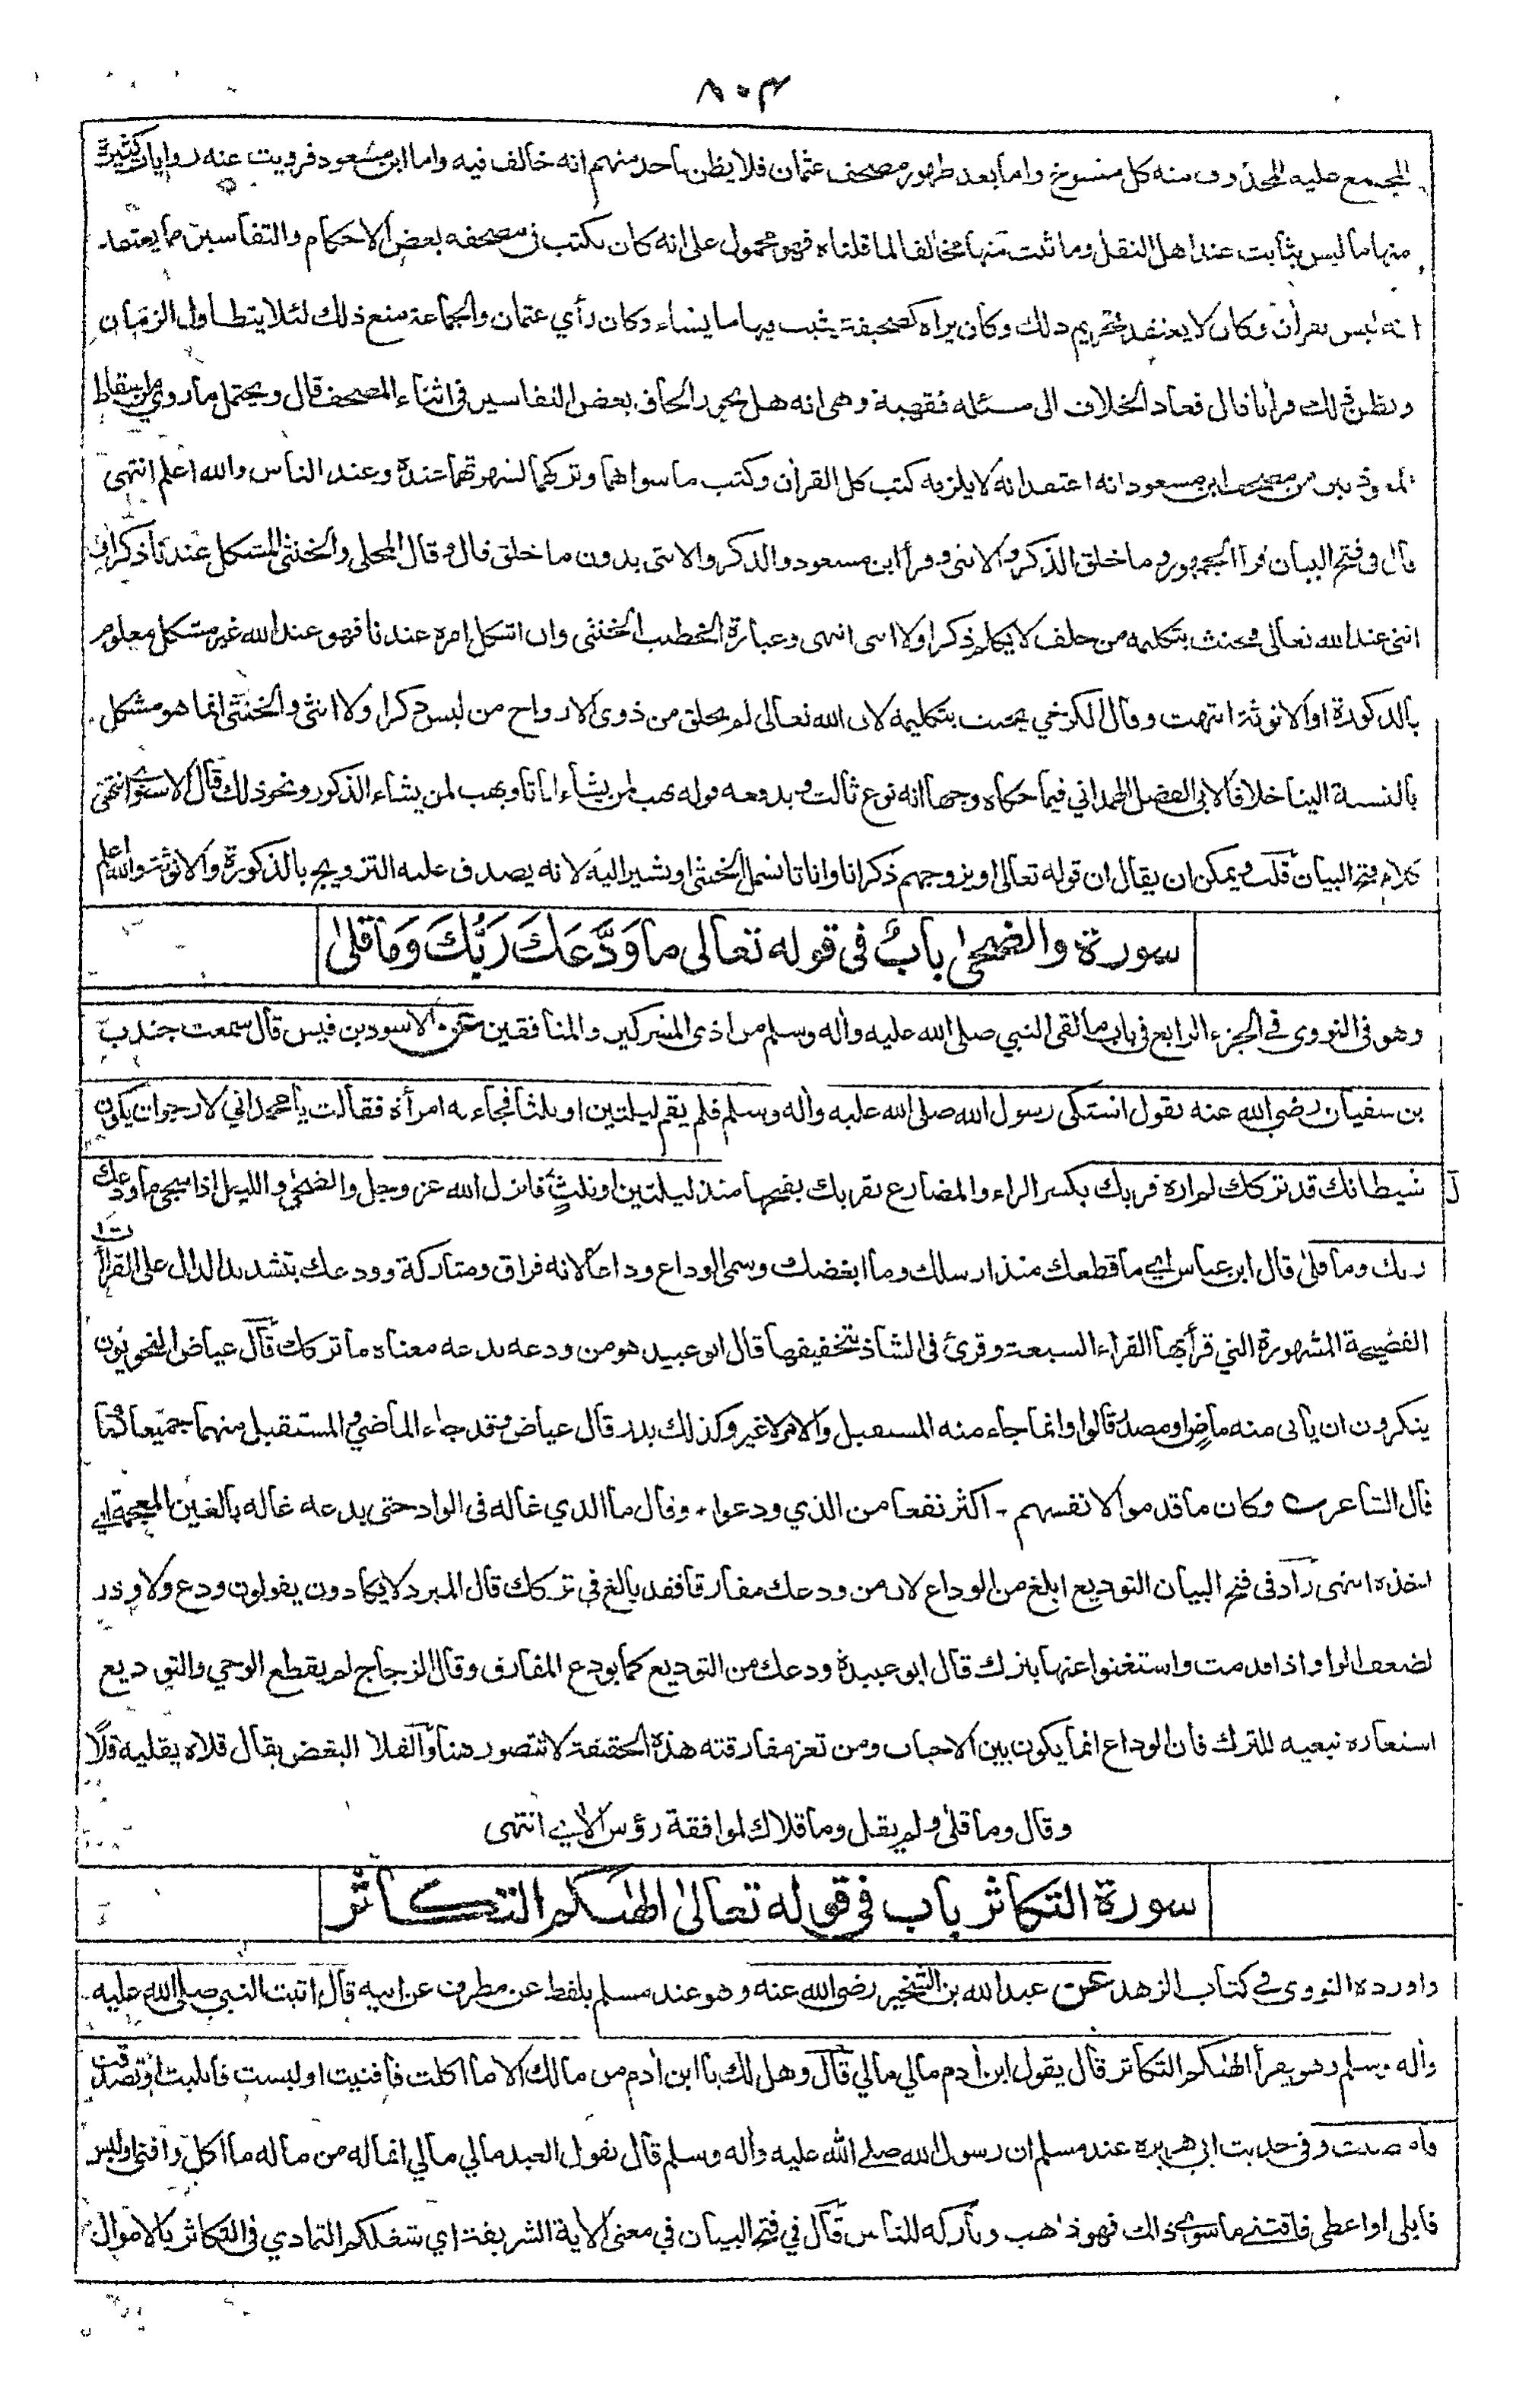 ٨٠٣
المجمع عليه المحذوف منه كل منسوخ واما بعد ظهور مصحف عثمان فلا يظن باحد منهم انه خالف فيه واما ابن مسعود فرويت عنه روايات كثيرة
منها ما ليس بثابت عند اهل النقل وما ثبت منها مخالفا لما قلناه فهو محمول على انه كان يكتب في مصحفه بعض الاحكام والتفاسير مما يعتقد
انه ليس بقرأن وكان لا يعتقد تحريم ذلك وكان يراه كصحيفة يثبت فيها ما يشاء وكان رأي عثمان والجماعة منع ذلك لئلا يتطاول الزمان
ويظن ذلك قرأنا قال فعاد الخلاف الى مسئلة فقهية وهي انه هل يجوز الحاق بعض التفاسير في اثناء المصحف قال ويحتمل ما روي من اسقاط
المعوذتين من مصحف ابن مسعود انه اعتقد انه لا يلزمه كتب كل القرأن وكتب ما سواهما وتركهما لشهرتهما عنده وعند الناس والله اعلم انتهى
قال في فتح البيان قرأ الجمهور وما خلق الذكر والانثى وقرأ ابن مسعود والذكر والانثى بدون ما خلق قال وقال المحلي والخنثى المشكل عندنا ذكر او
انثى عند الله تعالى فيحنث بتكليمه من حلف لا يكلم ذكرا ولا انثى انتهى وعبارة الخطيب الخنثى وان اشكل امره عندنا فهو عند الله غير مشكل معلوم
بالذكورة او الانوثة انتهت وقال الكرخي يحنث بتكليمه لان الله تعالى لم يخلق من ذوي الارواح من ليس ذكرا ولا انثى والخنثى انما هو مشكل
بالنسبة الينا خلافا لابي الفضل الهمداني فيما حكاه وجها انه نوع ثالث ويدفعه قوله يهب لمن يشاء اناثا ويهب لمن يشاء الذكور ونحو ذلك قال الاسنوي انتهى
كلام فتح البيان قلت ويمكن ان يقال ان قوله تعالى او يزوجهم ذكرانا واناثا تشمل الخنثى او تشير اليه لانه يصدق عليه التزويج بالذكورة والانوثة والله اعلم
سورة والضحى باب في قوله تعالى ما وَدَّعَكَ رَبُّكَ وَمَا قَلى
وهو في النووي في الجزء الرابع في باب ما لقي النبي صلى الله عليه وأله وسلم من اذى المشركين والمنافقين عن الاسود بن قيس قال سمعت جندب
بن سفيان رضي الله عنه يقول اشتكى رسول الله صلى الله عليه وأله وسلم فلم يقم ليلتين او ثلثا فجاءته امرأة فقالت يا محمد اني لارجو ان يكون
شيطانك قد تركك لم اره قربك بكسر الراء والمضارع يقربك بفتحها منذ ليلتين او ثلث فانزل الله عز وجل والضحى والليل اذا سجى ما ودعك
ربك وما قلى قال ابن عباس اي ما قطعك منذ ارسلك وما ابغضك وسمي الوداع وداعا لانه فراق ومتاركة وودعك بتشديد الدال على القراءات
الفصيحة المشهورة التي قرأ بها القراء السبعة وقرئ في الشاذ بتخفيفها قال ابو عبيد هو من ودعه يدعه معناه ما تركك قال عياض النحويون
ينكرون ان يأتي منه ماض او مصدر قالوا وانما جاء منه المستقبل والامر لا غير وكذلك يذر قال عياض وقد جاء الماضي والمستقبل منهما جميعا كما
قال الشاعر وكان ما قدموا لانفسهم - اكثر نفعا من الذي ودعوا + وقال ما الذي غاله في الواد حتى يدعه غاله بالغين المعجمة اي
اخذه انتهى زاد في فتح البيان التوديع ابلغ من الوداع لان من ودعك مفارقا فقد بالغ في تركك قال المبرد لا يكادون يقولون ودع ولا وذر
لضعف الواو اذا قدمت واستغنوا عنها بترك قال ابو عبيدة ودعك من التوديع كما يودع المفارق وقال الزجاج لم يقطع الوحي والتوديع
استعارة تبعية للترك فان الوداع انما يكون بين الاحباب ومن تعز مفارقته هذه الحقيقة لا تتصور هنا والقلا البغض يقال قلاه يقليه قلًا
وقال وما قلى ولم يقل وما قلاك لموافقة رؤس الأي انتهى
سورة التكاثر باب في قوله تعالى الهٰىكم التكاثر
واورده النووي في كتاب الزهد عن عبد الله بن الشخير رضي الله عنه وهو عند مسلم بلفظ عن مطرف عن ابيه قال اتيت النبي صلى الله عليه
وأله وسلم وهو يقرأ الهٰىكم التكاثر قال يقول ابن أدم مالي مالي قال وهل لك يا ابن أدم من مالك الا ما اكلت فافنيت او لبست فابليت او تصدقت
فامضيت وفي حديث ابي هريرة عند مسلم ان رسول الله صلى الله عليه وأله وسلم قال يقول العبد مالي مالي انما له من ماله ما اكل فافنى او لبس
فابلى او اعطى فاقتنى ما سوى ذلك فهو ذاهب وتاركه للناس قال في فتح البيان في معنى الأية الشريفة اي شغلكم التمادي في التكاثر بالاموال